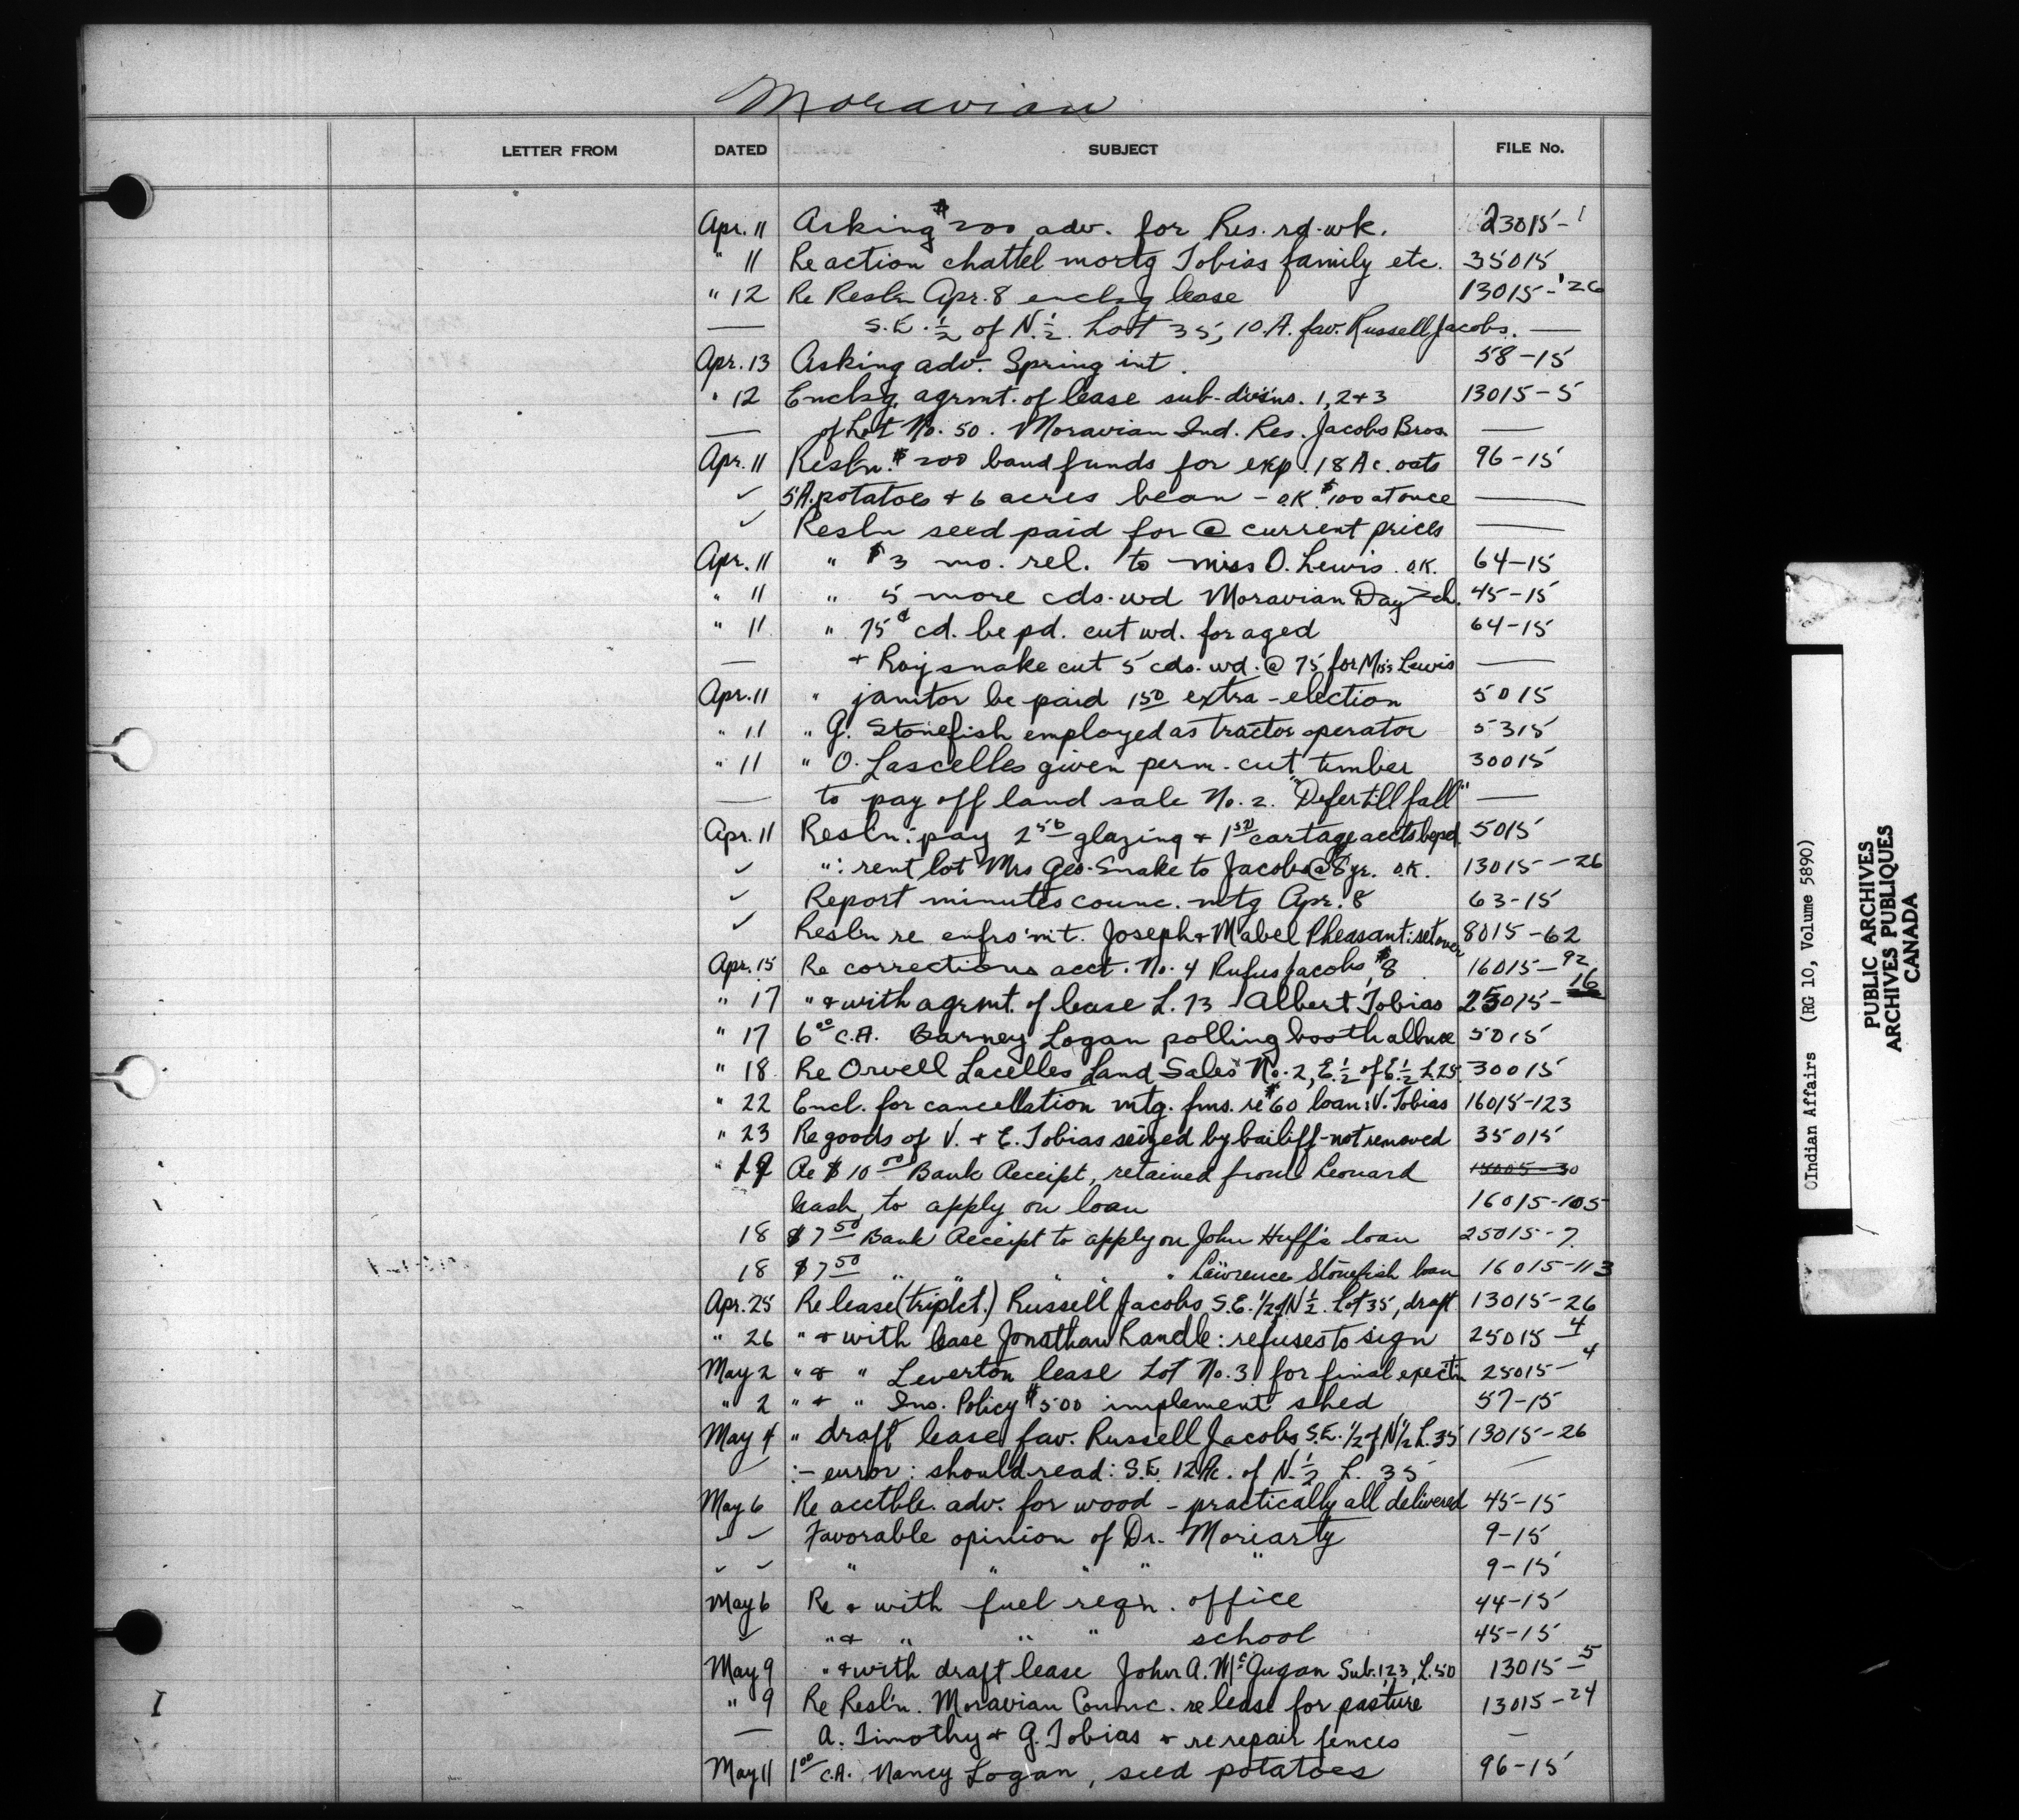 Moravian
LETTER FROM DATED SUBJECT FILE No.
Apr. 11 Asking $200 adv. for Res. rd. wk. 23015-1
" 11 Re action chattel mortg Tobias family etc. 35015
" 12 Re Resl'n Apr. 8 enclsg lease 13015-26
— S.E. ½ of N. ½ Lot 35, 10 A. fav. Russell Jacobs. —
Apr. 13 Asking adv. Spring int. 58-15
" 12 Enclsg. agrmt. of lease sub-divsns. 1, 2 + 3 13015-5
— of Lot No. 50. Moravian Ind. Res. Jacobs Bros. —
Apr. 11 Resl'n. $200 band funds for exp. 18 Ac. oats 96-15
✓ 5 A. potatoes + 6 acres bean - O.K. $100 at once —
✓ Resl'n seed paid for @ current prices —
Apr. 11 " $3 mo. rel. to Miss O. Lewis. O.K. 64-15
" 11 " 5 more cds. wd Moravian Day Sch. 45-15
" 11 " 75¢ cd. be pd. cut wd. for aged 64-15
— + Roy Snake cut 5 cds. wd. @ 75 for Miss Lewis —
Apr. 11 " janitor be paid 1 50 extra - election 5015
" 11 " G. Stonefish employed as tractor operator 5315
" 11 " O. Lascelles given perm. cut timber 30015
— to pay off land sale No. 2. "Defer till fall" —
Apr. 11 Resl'n: pay 2 50 glazing + 1 50 cartage accts be pd. 5015
✓ ": rent lot Mrs Geo. Snake to Jacobs @ 8 yr. O.K. 13015-26
✓ Report minutes counc. mtg Apr. 8 63-15
✓ Resl'n re enfro'mt. Joseph + Mabel Pheasant: set over 8015-62
Apr. 15 Re corrections acct. No. 4 Rufus Jacobs, $8 16015-92
" 17 " + with agrmt. of lease L. 13 Albert Tobias 25015-16
" 17 6 00 C.A. Barney Logan polling booth allnce 5015
" 18 Re Orvell Lacelles Land Sales No. 2, E. ½ of E. ½ L. 25. 30015
" 22 Encl. for cancellation mtg. fms. re $60 loan: V. Tobias 16015-123
" 23 Re goods of V. + E. Tobias seized by bailiff - not removed 35015
" 19 Re $10 00 Bank Receipt, retained from Leonard 15005-30
Cash, to apply on loan 16015-105
18 $7 50 Bank Receipt to apply on John Huff's loan 25015-7.
18 $7 50 " " " " " Lawrence Stonefish loan 16015-113
Apr. 25 Re lease (triplct.) Russell Jacobs S.E. 1/2 of N ½. Lot 35, draft 13015-26
" 26 " + with lease Jonathan Randle: refuses to sign 25015-4
May 2 " + " Leverton lease Lot No. 3 for final exect'n 25015-4
" 2 " + " Ins. Policy $500 implement shed 57-15
May 4 " draft lease fav. Russell Jacobs S.E. 1/2 of N 1/2 L. 35 13015-26
— :- error: should read: S.E. 12 Ac. of N. ½ L. 35 —
May 6 Re acctble. adv. for wood - practically all delivered 45-15
✓ ✓ Favorable opinion of Dr. Moriarty 9-15
✓ ✓ " " " " " 9-15
May 6 Re + with fuel reqn. office 44-15
✓ " + " " " school 45-15
May 9 " + with draft lease John A. McGugan Sub. 1, 2, 3, L. 50 13015-5
" 9 Re Resl'n. Moravian Counc. re lease for pasture 13015-24
— A. Timothy + G. Tobias + re repair fences —
May 11 1 00 C.A. Nancy Logan, seed potatoes 96-15
I
Indian Affairs (RG 10, Volume 5890)
PUBLIC ARCHIVES
ARCHIVES PUBLIQUES
CANADA